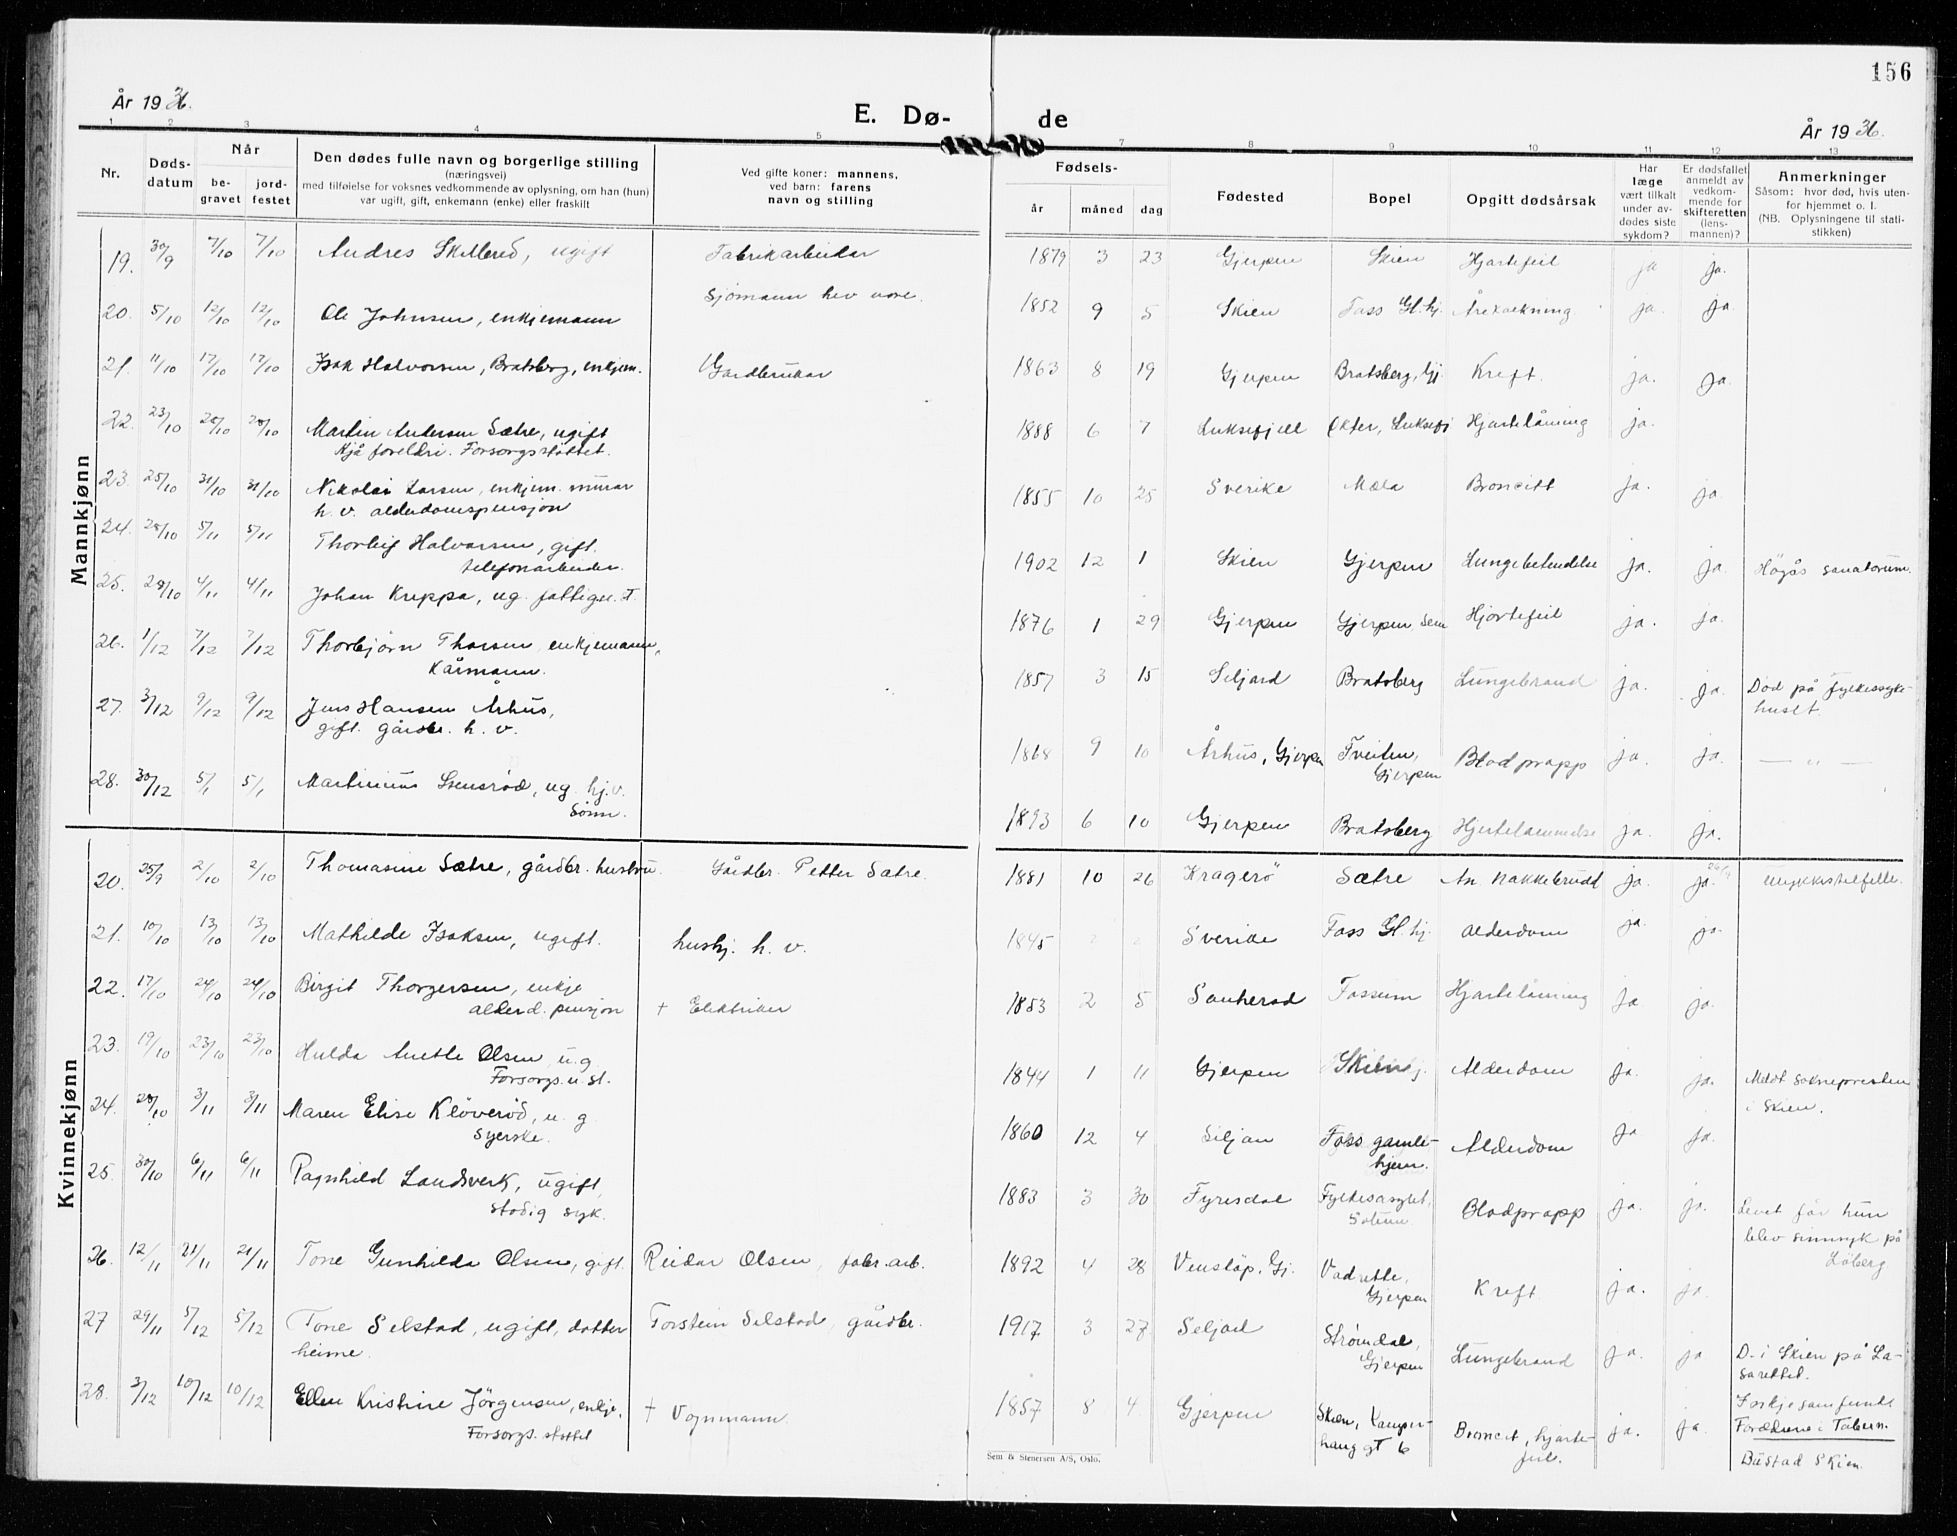 156
År 1936.
E. Dø-
de
År 1936.
1 2 3 4 5 7 8 9 10 11 12 13
Nr.
Døds-
datum
Når
be-
gravet
jord-
festet
Den dødes fulle navn og borgerlige stilling
(næringsvei)
med tilføielse for voksnes vedkommende av oplysning, om han (hun)
var ugift, gift, enkemann (enke) eller fraskilt
Ved gifte koner: mannens,
ved barn: farens
navn og stilling
Fødsels-
år
måned
dag
Fødested
Bopel
Opgitt dødsårsak
Har
læge
vært tilkalt
under av-
dødes siste
sykdom?
Er dødsfallet
anmeldt av
vedkom-
mende for
skifteretten
(lens-
mannen)?
Anmerkninger
Såsom: hvor død, hvis uten-
for hjemmet o. l.
(NB. Oplysningene til stati-
stikken)
Mannkjønn
19. 30/9 7/10 7/10 Andres Skilbred, ugift Fabrikarbeidar 1879 3 23 Gjerpen Skien Hjartefeil ja ja.
Sjømann hev vore.
20. 5/10 12/10 12/10 Ole Johnsen, enkjemann 1852 9 5 Skien Foss Gl. hj. ja. ja.
21. 11/10 17/10 17/10 Isak Halvorsen, Bratsberg, enkjem. Gardbrukar 1863 8 19 Gjerpen Bratsberg, Gj. Kreft. ja. ja.
22. 23/10 28/10 28/10 Martin Andersen Sætre, ugift 1888 6 7 Luksefjell Økter, Luksefj Hjartelåming ja.
hjå foreldre. Forsorgsstøttet.
23. 25/10 31/10 31/10 Nikolai Larsen, enkjem. murar 1855 10 25 Sverike Mæla Broncitt ja. ja.
h. v. alderdomspensjon
24. 28/10 5/11 5/11 Thorleif Halvorsen, gift. 1902 12 1 Skien Gjerpen Lungebetendelse ja. ja. Högås sanatorium.
telefonarbeider.
25. 28/10 4/11 4/11 Johan Kreppa, ug. 1876 1 29 Gjerpen Gjerpen, Sem Hjortefeil ja. ja.
26. 1/12 7/12 7/12 Thorbjörn Thorsen enkjemann, 1857 3 15 Siljord Bratsberg Lungebrand ja. ja. Död på fylkessyke-
kårmann. huset.
27. 3/12 9/12 9/12 Jens Hansen Århus, 1868 9 10 Århus, Gjerpen Tveiten, Blodpropp ja. ja. — " —
gift. gårdbr. h. v. Gjerpen
28. 30/12 5/1 5/1 Martinius Stensrød, ug. hj.v. 1893 6 10 Gjerpen Bratsberg Hjertelammelse ja. ja.
Sönn.
Kvinnekjønn
20. 25/9 2/10 2/10 Thomasine Sætre, gårdbr. hustru. Gårdbr. Petter Sætre. 1881 10 26 Kragerö Sætre An. Nakkebrudd ja. ja. 26/9 ulykkestilfelle.
21. 10/10 13/10 13/10 Mathilde Isaksen, ugift. hushj. h. v. 1845 2 2 Sverike Foss Gl. hj. Alderdom ja. ja.
22. 17/10 24/10 24/10 Birgit Thorgersen, enkje + Elektriker 1853 2 5 Sauherad Fossum Hjartelåming ja ja.
alderd. pensjon
23. 19/10 23/10 23/10 Hulda Anette Olsen, u.g 1844 1 11 Gjerpen Skien Alderdom ja. ja. Meldt soknepresten
Forsorgs. u. st. i Skien.
24. 28/10 3/11 3/11 Maren Elise Klöveröd, u. g 1860 12 4 Siljan Foss gamle- Alderdom ja ja.
Syerske. hjem.
25. 30/10 6/11 6/11 Ragnhild Landsverk, ugift, 1883 3 30 Fyresdal Fylkesasylet, Blodpropp ja. ja. Levet för hun
stadig syk. Solum. blev sinnsyk på
Löberg
26. 12/11 21/11 21/11 Tone Gunhilde Olsen, gift. Reidar Olsen, fabr. arb. 1892 4 28 Venstöp, Gj. Vadrette, Kreft ja. ja.
Gjerpen
27 29/11 5/12 5/12 Tone Selstad, ugift, datter Torstein Selstad, gårdbr. 1917 3 27 Seljord Strömdal, Lungebrand ja. ja D. i Skien på La-
heime. Gjerpen sarettet.
28. 3/12 10/12 10/12 Ellen Kristine Jörgensen, enkje. + Vognmann. 1857 8 4 Gjerpen Skien, Kamper- Broncit, hjarte- ja. ja.
Forsorgs. støttet haug gt 6 feil.
Bustad Skien.
Sem & Stenersen A/S, Oslo.